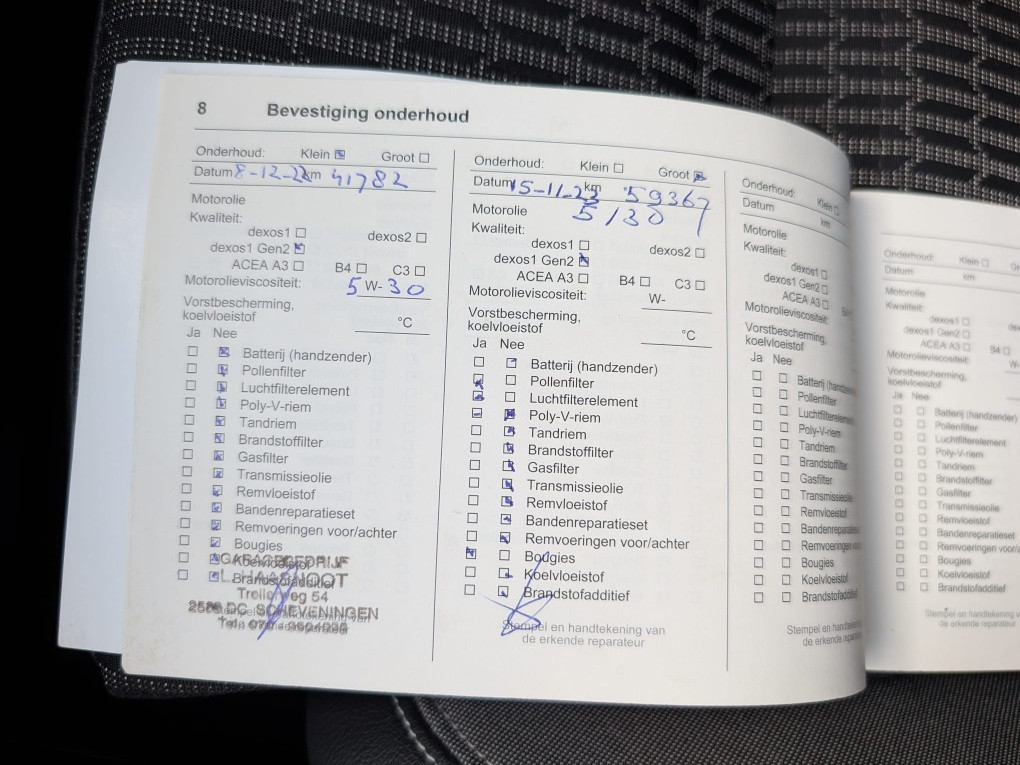 8 Bevestiging onderhoud
Onderhoud: Klein Groot
Datum 8-12-22 km 41782
Motorolie
Kwaliteit:
dexos1 dexos2
dexos1 Gen2
ACEA A3 B4 C3
Motorolieviscositeit: 5 W- 30
Vorstbescherming,
koelvloeistof °C
Ja Nee
Batterij (handzender)
Pollenfilter
Luchtfilterelement
Poly-V-riem
Tandriem
Brandstoffilter
Gasfilter
Transmissieolie
Remvloeistof
Bandenreparatieset
Remvoeringen voor/achter
Bougies
Koelvloeistof
Brandstofadditief
GARAGEBEDRIJF
HAASNOOT
Trolieweg 54
DC SCHEVENINGEN
Onderhoud: Klein Groot
Datum 15-11-23 km 59367
Motorolie 5/30
Kwaliteit:
dexos1 dexos2
dexos1 Gen2
ACEA A3 B4 C3
Motorolieviscositeit: W-
Vorstbescherming,
koelvloeistof °C
Ja Nee
Batterij (handzender)
Pollenfilter
Luchtfilterelement
Poly-V-riem
Tandriem
Brandstoffilter
Gasfilter
Transmissieolie
Remvloeistof
Bandenreparatieset
Remvoeringen voor/achter
Bougies
Koelvloeistof
Brandstofadditief
Stempel en handtekening van
de erkende reparateur
Onderhoud: Klein
Datum km
Motorolie
Kwaliteit:
dexos1
dexos1 Gen2
ACEA A3
Motorolieviscositeit:
Vorstbescherming,
koelvloeistof
Ja Nee
Batterij
Pollenfilter
Luchtfilterelement
Poly-V-riem
Tandriem
Brandstoffilter
Gasfilter
Transmissieolie
Remvloeistof
Bandenreparatieset
Remvoeringen
Bougies
Koelvloeistof
Brandstofadditief
Stempel en handtekening
de erkende reparateur
Onderhoud: Klein
Datum km
Motorolie
Kwaliteit:
dexos1
dexos1 Gen2
ACEA A3 B4
Motorolieviscositeit: W-
Vorstbescherming,
koelvloeistof
Ja Nee
Batterij (handzender)
Pollenfilter
Luchtfilterelement
Poly-V-riem
Tandriem
Brandstoffilter
Gasfilter
Transmissieolie
Remvloeistof
Bandenreparatieset
Remvoeringen voor/
Bougies
Koelvloeistof
Brandstofadditief
Stempel en handtekening van
de erkende reparateur